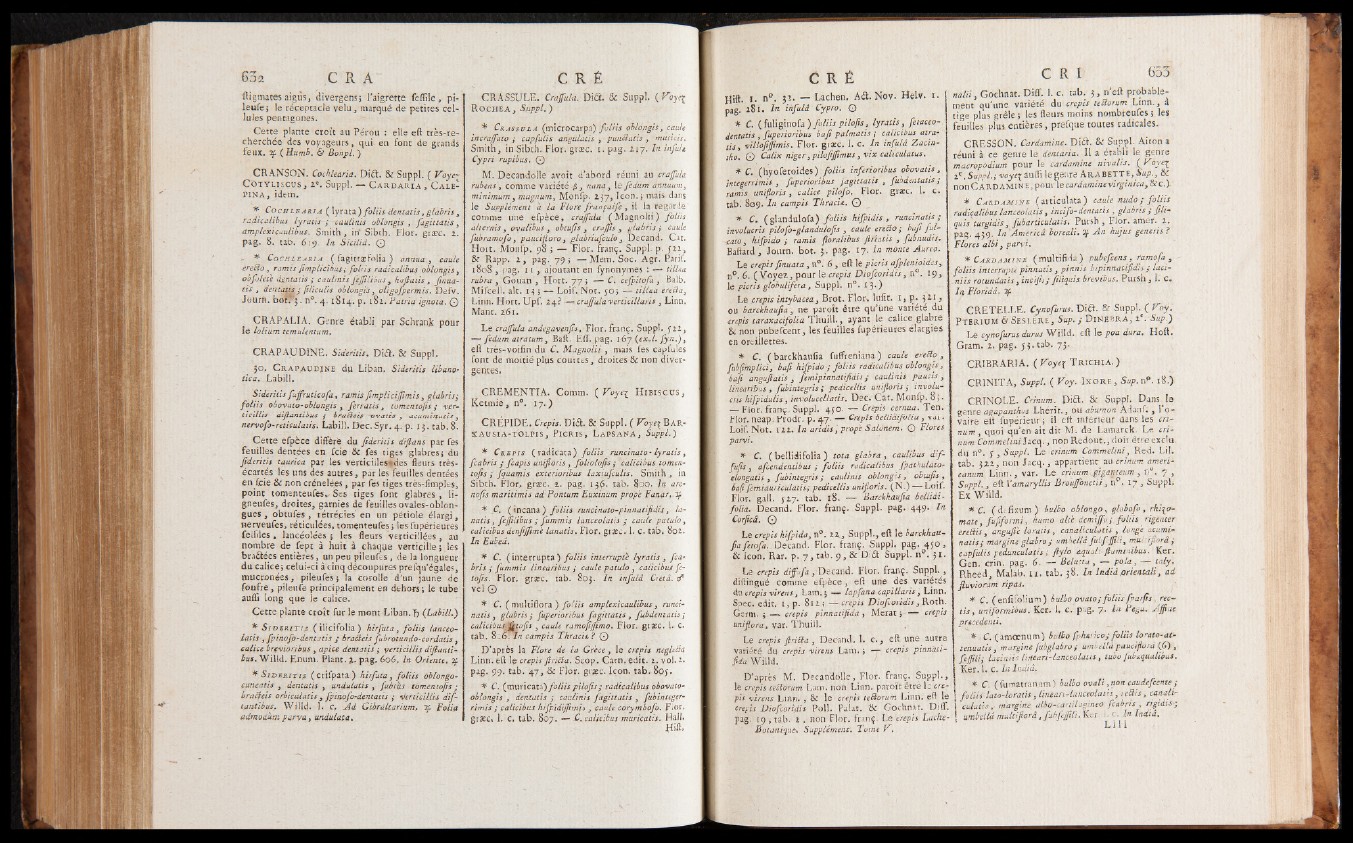 632 C R A
ſtigmates aigus, divergens; l'aigrette ſeſſile, pi-
leuſe; le réceptacle velu, marqué de petites cel-
lules pentagones.
Cette plante croît au Pérou : elle eſt très-re-
cherchée des voyageurs, qui en font de grands
feux. ♃ (Humb. & Bonpl.)
CRANSON. Cochlearia. Dict. & Suppl. (Voyez
COTYLISCUS, 2e. Suppl. — CARDARIA, CALE-
PINA, idem.
* COCHLEARIA (lyrata) foliis dentatis, glabris,
radicalibus lyratis ; caulinis oblongis, ſagittatis,
amplexicaulibus. Smith, in Sibth. Flor. græc. 2.
pag. 8. tab. 619. In Sicilià. ☉
* COCHLEARIA (ſagittæfolia) annua, caule
erecto, ramis ſimplicibus; foliis radicalibus oblongis,
obſoletè dentatis ; caulinis ſeſſilibus, haſtatis, ſinua-
tis, dentatis ; ſiliculis oblongis, oligoſpermis. Deſv.
Journ. bot. 3. n°. 4. 1814. p. 181. Patria ignota. ☉
CRAPALIA. Genre établi par Schrank pour
le lolium temulentum.
CRAPAUDINE. Sideritis. Dict. & Suppl.
30. CRAPAUDINE du Liban. Sideritis libano-
tica. Labill.
Sideritis ſuffruticoſa, ramis ſimpliciſſimis, glabris;
foliis obovato-oblongis, ſerratis, tomentoſis ; ver-
ticillis diſtantibus ; bracteis ovatis, acuminatis,
nervoſo-reticulatis. Labill. Dec. Syr. 4. p. 13. tab. 8.
Cette eſpèce diffère du ſideritis diſtans par ſes
feuilles dentées en ſcie & ſes tiges glabres; du
ſideritis taurica par les verticilles des fleurs très-
écartés les uns des autres, par les feuilles dentées
en ſcie & non crénelées, par ſes tiges très-ſimples,
point tomenteuſes. Ses tiges ſont glabres, li-
gneuſes, droites, garnies de feuilles ovales-oblon-
gues, obtuſes, rétrécies en un pétiole élargi,
nerveuſes, réticulées, tomenteuſes; les ſupérieures
ſeſſiles, lancéolées ; les fleurs verticillées, au
nombre de ſept à huit à chaque verticille; les
bractées entières, un peu pileuſes, de la longueur
du calice; celui-ci à cinq découpures preſqu'égales,
mucronées, pileuſes; la corolle d'un jaune de
ſoufre, pileuſe principalement en dehors; le tube
auſſi long que le calice.
Cette plante croît ſur le mont Liban. ♄ (Labill.)
* SIDERITIS (ilicifolia) hirſuta, foliis lanceo-
latis, ſpinoſo-dentatis ; bracteis ſubrotundo-cordatis,
calice brevioribus, apice dentatis ; verticillis diſtanti-
bus. Willd. Enum. Plant. 2. pag. 606. In Oriente. ♃
* SIDERITIS (criſpata) hirſuta, foliis oblongo-
cuneatis, dentatis, undulatis, ſubtùs tomentoſis ;
bracteis orbiculatis, ſpinoſo-dentatis ; verticillis diſ-
tantibus. Willd. l. c. Ad Gibraltarium. ♃ Folia
admodùm parva, undulata.
C R É
CRASSULE. Craſſula. Dict. & Suppl. (Voyez
ROCHEA, Suppl.)
* CRASSULA (microcarpa) foliis oblongis, caule
incraſſato ; capſulis angulatis, punctatis, muticis.
Smith, in Sibth. Flor. græc. 1. pag. 217. In inſulæ
Cypri rupibus. ☉
M. Decandolle avoit d'abord réuni au craſſula
rubens, comme variété β, nana, le ſedum annuum,
minimum, magnum, Monſp. 237, Icon.; mais dans
le Supplément à la Flore françaiſe, il la regarde
comme une eſpèce, craſſula (Magnolii) foliis
alternis, ovalibus, obtuſis, craſſis, glabris ; caule
ſubramoſo, paucifloro, glabriuſculo, Decand. Cat.
Hort. Monſp. 98 ; — Flor. franç. Suppl. p. 522,
& Rapp. 2, pag. 79; — Mem. Soc. Agr. Pariſ.
1808, pag. 11, ajoutant en ſynonymes : — tillæa
rubra, Gouan, Hort. 77 ; — C. ceſpitoſa, Balb.
Miſcell. alt. 13 ; — Loiſ. Not. 503 — tillæa erecta,
Linn. Hort. Upſ. 24? — craſſula verticillaris, Linn.
Mant. 261.
Le craſſula andegavenſis, Flor. franç. Suppl. 522,
— ſedum atratum, Baſt. Eſſ. pag. 167 (excl. ſyn.),
eſt très-voiſin du C. Magnolii, mais ſes capſules
ſont de moitié plus courtes, droites & non diver-
gentes.
CREMENTIA. Comm. (Voyez HIBISCUS,
Ketmie, n°. 17.)
CREPIDE. Crepis. Dict. & Suppl. (Voyez BAR-
KAUSIA-TOLPIS, PICRIS, LAPSANA, Suppl.)
* CREPIS (radicata) foliis runcinato-lyratis,
ſcabris ; ſcapis unifloris, folioloſis ; calicibus tomen-
toſis ; ſquamis exterioribus laxiuſculis. Smith, in
Sibth. Flor. græc. 2. pag. 136. tab. 800. In are-
noſis maritimis ad Pontum Euxinum propè Fanar. ♃
* C. (incana) foliis runcinato-pinnatifidis, la-
natis, ſeſſilibus ; ſummis lanceolatis ; caule patulo,
calicibus denſiſſimè lanatis. Flor. græc. l. c. tab. 801.
In Eubeâ.
* C. (interrupta) foliis interruptè lyratis, ſca-
bris ; ſummis linearibus ; caule patulo, calicibus ſe-
toſis. Flor. græc. tab. 803. In inſulâ Cretâ. ♂
vel ☉
* C. (multiflora) foliis amplexicaulibus, runci-
natis, glabris ; ſuperioribus ſagittatis, ſubdentatis ;
calicibus ſetoſis, caule ramoſiſſimo. Flor. græc. l. c.
tab. 806. In campis Thraciæ ? ☉
D'après la Flore de la Grèce, le crepis neglecta
Linn. eſt le crepis ſtricta. Scop. Carn. edit. 2. vol. 2.
pag. 99. tab. 47, & Flor. græc. Icon. tab. 805.
* C. (muricata) foliis piloſis ; radicalibus obovato-
oblongis, dentatis ; caulinis ſagittatis, ſubinteger-
rimis ; calicibus hiſpidiſſimis, caule corymboſo. Flor.
græc. l. c. tab. 807. — C. calicibus muricatis. Hall.
Hiſt.
C R É
Hiſt. 1. n°. 32. — Lachen. Act. Nov. Helv. 1.
pag. 281. In inſulâ Cypro. ☉
* C. (fuliginoſa) foliis piloſis, lyratis, ſetaceo-
dentatis ; ſuperioribus baſi palmatis ; calicibus atra-
tis, villoſiſſimis. Flor. græc. l. c. In inſulâ Zacin-
tho. ☉ Calix niger, piloſiſſimus, vix caliculatus.
* C. (hyoſeroides) foliis inferioribus obovatis,
integerrimis, ſuperioribus ſagittatis, ſubdentatis ;
ramis unifloris, calice piloſo. Flor. græc. l. c.
tab. 809. In campis Thraciæ. ☉
* C. (glanduloſa) foliis hiſpidis, runcinatis ;
involucris piloſo-glanduloſis, caule erecto ; baſi ſul-
cato, hiſpido ; ramis floralibus ſtriatis, ſubnudis.
Baſtard, Journ. bot. 3. pag. 17. In monte Aureo.
Le crepis ſinuata, n°. 6, eſt le picris aſplenioides,
n°. 6. (Voyez, pour le crepis Dioſcoridis, n°. 19,
le picris globulifera, Suppl. n°. 13.)
Le crepis intybacea, Brot. Flor. luſit. 1, p. 321,
ou barckhauſia, ne paroît être qu'une variété du
crepis taraxacifolia Thuill., ayant le calice glabre
& non pubeſcent, les feuilles ſupérieures élargies
en oreillettes.
* C. (barckhauſia ſuffreniana) caule erecto,
ſubſimplici, baſi hiſpido ; foliis radicalibus oblongis,
baſi anguſtatis, ſemipinnatifidis ; caulinis paucis,
linearibus, ſubintegris ; pedicellis unifloris ; involu-
cris hiſpidulis, involucellatis. Dec. Cat. Monſp. 83.
— Flor. franç. Suppl. 450. — Crepis cernua. Ten.
Flor. neap. Prodr. p. 47. — Crepis bellidifolia, var.
Loiſ. Not. 122. In aridis, propè Salonem. ☉ Flores
parvi.
* C. (bellidifolia) tota glabra, caulibus dif-
fuſis, aſcendentibus ; foliis radicalibus ſpathulato-
elongatis, ſubintegris ; caulinis oblongis, obtuſis,
baſi ſemiauriculatis; pedicellis unifloris. (N.) — Loiſ.
Flor. gall. 527. tab. 18. — Barckhauſia bellidi-
folia. Decand. Flor. franç. Suppl. pag. 449. In
Corſicâ. ☉
Le crepis hiſpida, n°. 22, Suppl., eſt le barckhau-
ſia ſetoſa, Decand. Flor. franç. Suppl. pag. 450,
& Icon. Rar. p. 7, tab. 9, & Dict. Suppl. n°. 31.
Le crepis diffuſa, Decand. Flor. franç. Suppl.,
diſtingué comme eſpèce, eſt une des variétés
du crepis virens, Lam.; — lapſana capillaris, Linn.
Spec. edit. 1, p. 812 ; — crepis Dioſcoridis, Roth.
Germ. ; — crepis pinnatifida, Merat ; — crepis
uniflora, var. Thuill.
Le crepis ſtricta, Decand. l. c., eſt une autre
variété du crepis virens Lam. ; — crepis pinnati-
fida Willd.
D'après M. Decandolle, Flor. franç. Suppl.,
le crepis tectorum Lam. non Linn. paroît être le cre-
pis virens Linn., & le crepis tectorum Linn. eſt le
crepis Dioſcoridis Poll. Palat. & Gochnat. Diff.
pag. 19, tab. 2, non Flor. franç. Le crepis Lache-
Botanique. Supplément. Tome V.
C R I 633
nalii, Gochnat. Diſſ. l. c. tab. 3, n'eſt probable-
ment qu'une variété du crepis tectorum Linn., à
tige plus grêle; les fleurs moins nombreuſes; les
feuilles plus entières, preſque toutes radicales.
CRESSON. Cardamine. Dict. & Suppl. Aiton a
réuni à ce genre le dentaria. Il a établi le genre
macropodium pour le cardamine nivalis. (Voyez
2e. Suppl.; voyez auſſi le genre ARABETTE, Sup., &
non CARDAMINE, pour le cardamine virginica, &c.)
* CARDAMINE (articulata) caule nudo ; foliis
radicalibus lanceolatis, inciſo-dentatis, glabris ; ſili-
quis turgidis, ſubarticulatis. Pursh, Flor. amer. 2.
pag. 439. In Americâ boreali. ♃ An hujus generis ?
Flores albi, parvi.
* CARDAMINE (multifida) pubeſcens, ramoſa,
foliis interruptè pinnatis, pinnis bipinnatifidis ; laci-
niis rotundatis, inciſis ; ſiliquis brevibus. Purſh, l. c.
In Floridâ. ♃
CRETELLE. Cynoſurus. Dict. & Suppl. (Voy.
PTERIUM & SESLERE, Sup. ; DINEBRA, 2e. Sup.)
Le cynoſurus durus Willd. eſt le poa dura. Hoſt.
Gram. 2. pag. 53. tab. 73.
CRIBRARIA. (Voyez TRICHIA.)
CRINITA, Suppl. (Voy. IXORE, Sup. n°. 18.)
CRINOLE. Crinum. Dict. & Suppl. Dans le
genre agapanthus Lhérit., ou abumon Adanſ., l'o-
vaire eſt ſupérieur ; il eſt inférieur dans les cri-
num, quoi qu'en ait dit M. de Lamarck. Le cri-
num Commelini Jacq., non Redout., doit être exclu
du n°. 5, Suppl. Le crinum Commelini, Red. Lil.
tab. 322, non Jacq., appartient au crinum ameri-
canum Linn., var. Le crinum giganteum, n°. 7,
Suppl., eſt l'amaryllis Brouſſonetii, n°. 17, Suppl.
Ex Willd.
* C. (defixum) bulbo oblongo, globoſo, rhizo-
mate, fuſiformi, humo altè demiſſo ; foliis rigenter
erectis, anguſtè loratis, canaliculatis, longè acumi-
natis ; margine glabro ; umbellâ ſubſeſſili, multiflorâ ;
capſulis pedunculatis ; ſtylo æquali ſtaminibus. Ker.
Gen. crin. pag. 6. — Belutta, — pola, — taly.
Rheed, Malab. 11. tab. 38. In Indiâ orientali, ad
fluviorum ripas.
* C. (enſifolium) bulbo ovato; foliis ſparſis, rec-
tis, uniformibus. Ker. l. c. pag. 7. In Pegu. Affine
præcedenti.
* C. (amœnum) bulbo ſphærico; foliis lorato-at-
tenuatis, margine ſubglabro ; umbellâ pauciflorâ (6),
ſeſſili; laciniis lineari-lanceolatis, tubo ſubæqualibus.
Ker. l. c. In Indiâ.
* C. (ſumatranum) bulbo ovali, non caudeſcente ;
foliis lato-loratis, lineari-lanceolatis, rectis, canali-
culatis, margine albo-cartilagineo ſcabris, rigidis ;
umbellâ multiflorâ, ſubſeſſili. Ker. l. c. In Indiâ.
L l l l